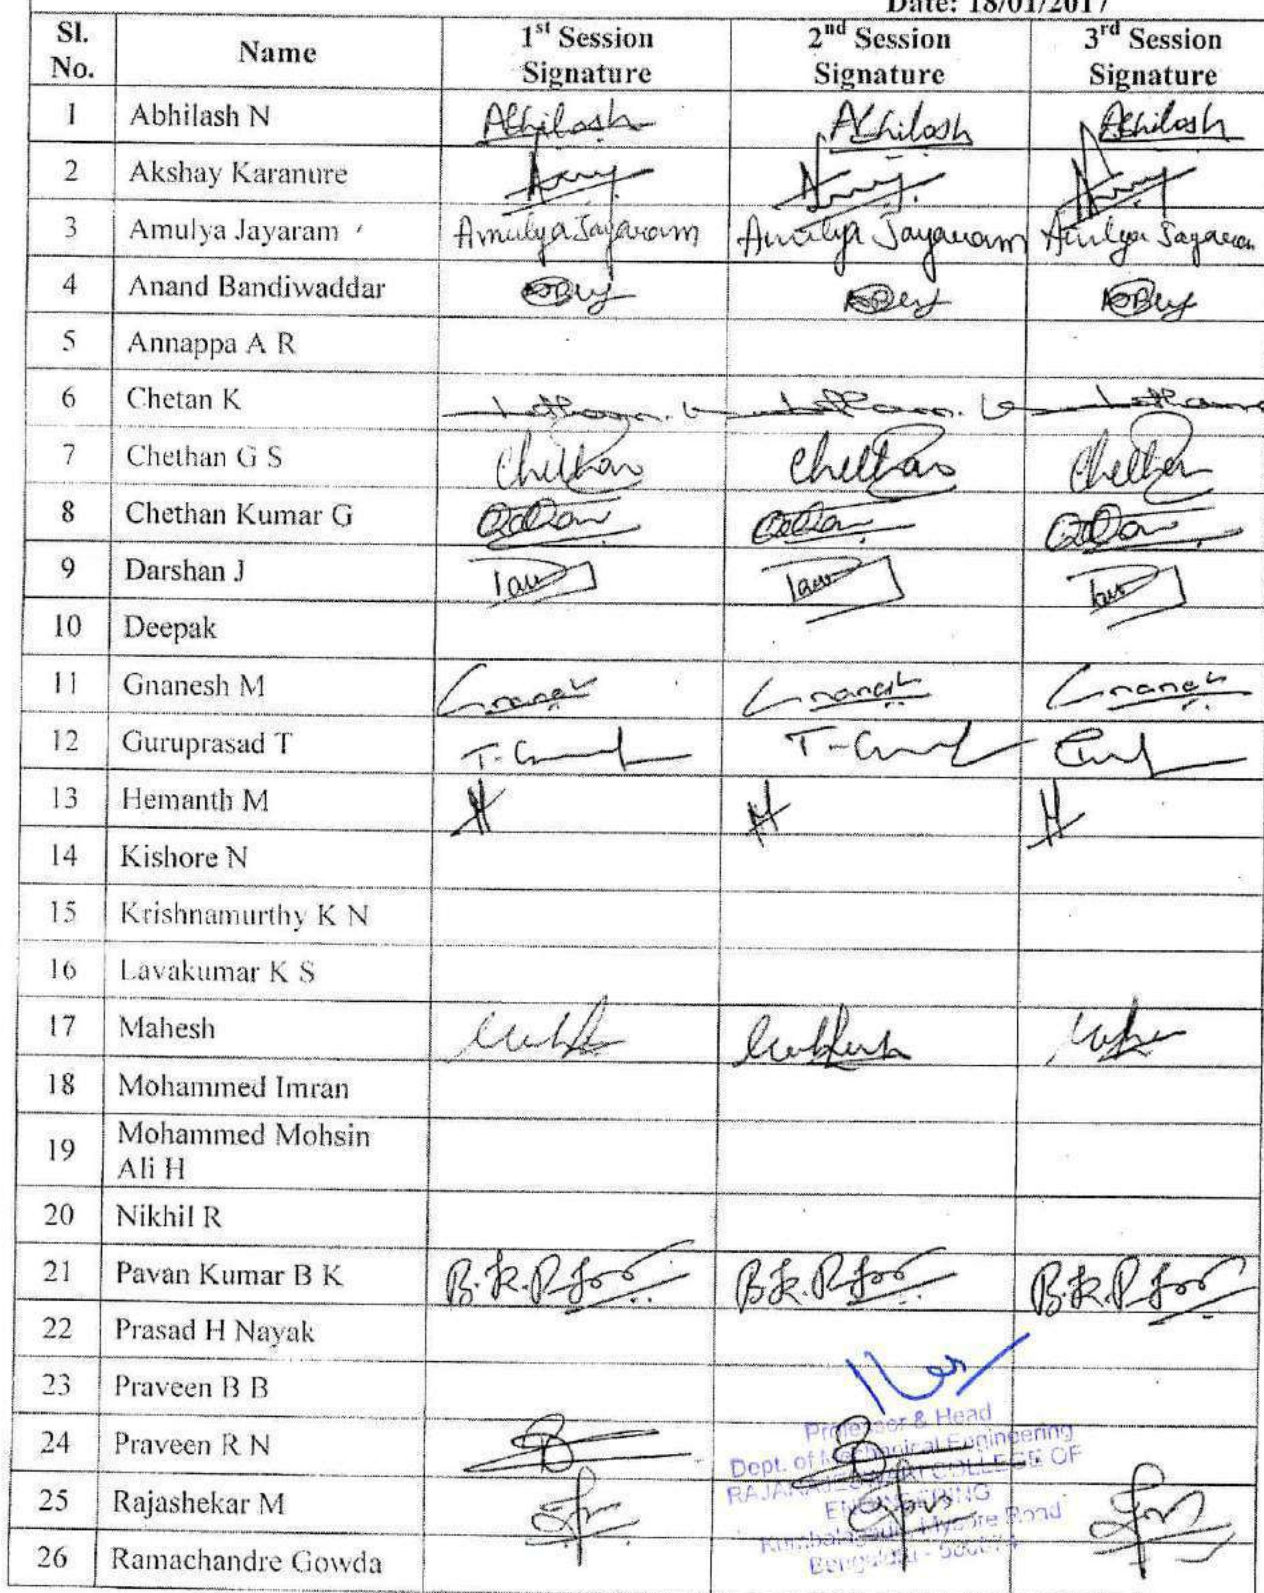 Date: 18/01/2017
Sl. No. Name 1st Session Signature 2nd Session Signature 3rd Session Signature
1 Abhilash N Abhilash Abhilash Abhilash
2 Akshay Karanure
3 Amulya Jayaram Amulya Jayaram Amulya Jayaram Amulya Jayaram
4 Anand Bandiwaddar
5 Annappa A R
6 Chetan K
7 Chethan G S Chethan Chethan Chethan
8 Chethan Kumar G
9 Darshan J
10 Deepak
11 Gnanesh M Gnanesh Gnanesh Gnanesh
12 Guruprasad T
13 Hemanth M H H H
14 Kishore N
15 Krishnamurthy K N
16 Lavakumar K S
17 Mahesh
18 Mohammed Imran
19 Mohammed Mohsin
Ali H
20 Nikhil R
21 Pavan Kumar B K B.K.P B.K.P B.K.P
22 Prasad H Nayak
23 Praveen B B
Professor & Head
24 Praveen R N
Dept. of Mechanical Engineering
RAJARAJESWARI COLLEGE OF
25 Rajashekar M
ENGINEERING
Mysore Road
26 Ramachandre Gowda